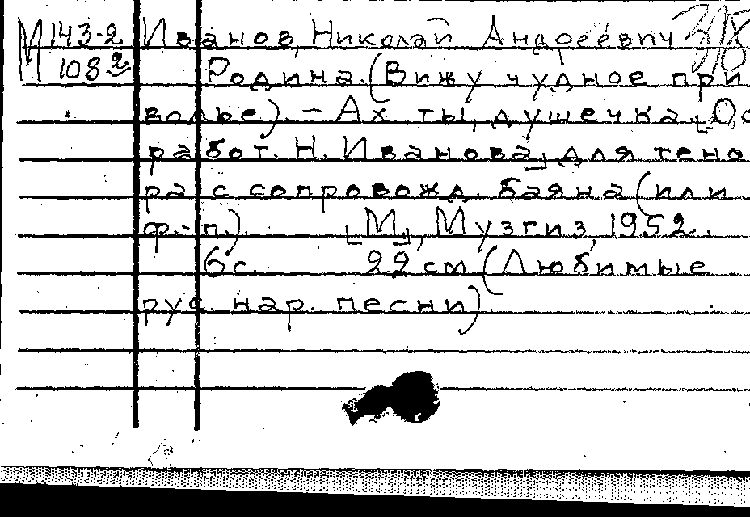 М 143-2 Иванов, Николай Андреевич 318
108 2 Родина. (Вижу чудное при
волье). - Ах ты, душечка. [Об
работ. Н. Иванова] для тено
ра с сопровожд. баяна (или
ф.-п.) [М.], Музгиз, 1952.
6 с. 22 см (Любимые
рус. нар. песни)